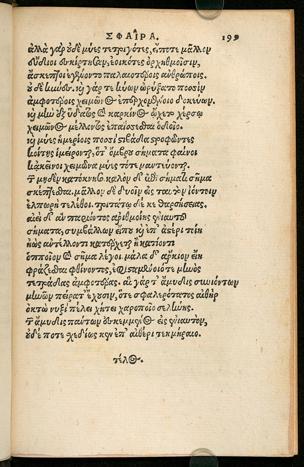 ΣΦΑΙΡΑ. 199
ἀλλὰ γὰρ οὐδὲ μύες τετριγότες, εἴποτε μᾶλλον
εὔδιοι ἐσκίρτησαν, ἐοικότες ὀρχηθμοῖσιν,
ἄσκεπτοι ἐγένοντο παλαιοτέροις ἀνθρώποις.
οὐδὲ κύνες. καὶ γάρ τε κύων ὠρύξατο ποσσὶν
ἀμφοτέροις χειμῶνος ἐπερχομένοιο δοκεύων.
καὶ μὴν ἐξ ὕδατος καὶ καρκίνος ᾤχετο χέρσον
χειμῶνος μέλλοντος ἐπαΐσσεσθαι ὁδοῖο.
καὶ μύες ἡμέριοι ποσσὶ στιβάδα στρωφῶντες
κοίτης ἱμείρονται, ὅτ' ὄμβρου σήματα φαίνοι
κἀκεῖνοι χειμῶνα μύες τότε μαντεύονται.
τῶν μηδὲν κατόκνησο καλὸν δὲ ἐπὶ σήματι σῆμα
σκέπτεσθαι. μᾶλλον δὲ δυοῖν εἰς ταυτὸν ἰόντων
ἐλπωρὴ τελέθοι. τριτάτῳ δέ κε θαρσήσειας.
αἰεὶ δ' ἂν παριόντος ἀριθμοίης ἐνιαυτοῦ
σήματα, συμβάλλων εἴπου καὶ ἐπ' ἀστέρι τοίη
ἠὼς ἀντέλλοντι κατέρχεται ἢ κατιόντι
ὁπποῖον καὶ σῆμα λέγοι μάλα δ' ἄρκιον εἴη
φράζεσθαι φθίνοντος, ἐφισταμένοιό τε μηνὸς
τετράδας ἀμφοτέρας. αἱ γάρ τ' ἄμυδις συνιόντων
μηνῶν πείρατ' ἔχουσιν, ὅτε σφαλερώτατος αἰθὴρ
ὀκτὼ νυξὶ πέλει χήτει χαροποῖο σελήνης.
τῶν ἄμυδις πάντων ἐσκεμμένος εἰς ἐνιαυτόν,
οὐδέποτε σχεδίως κεν ἐπ' αἰθέρι τεκμήραιο.
τέλος.